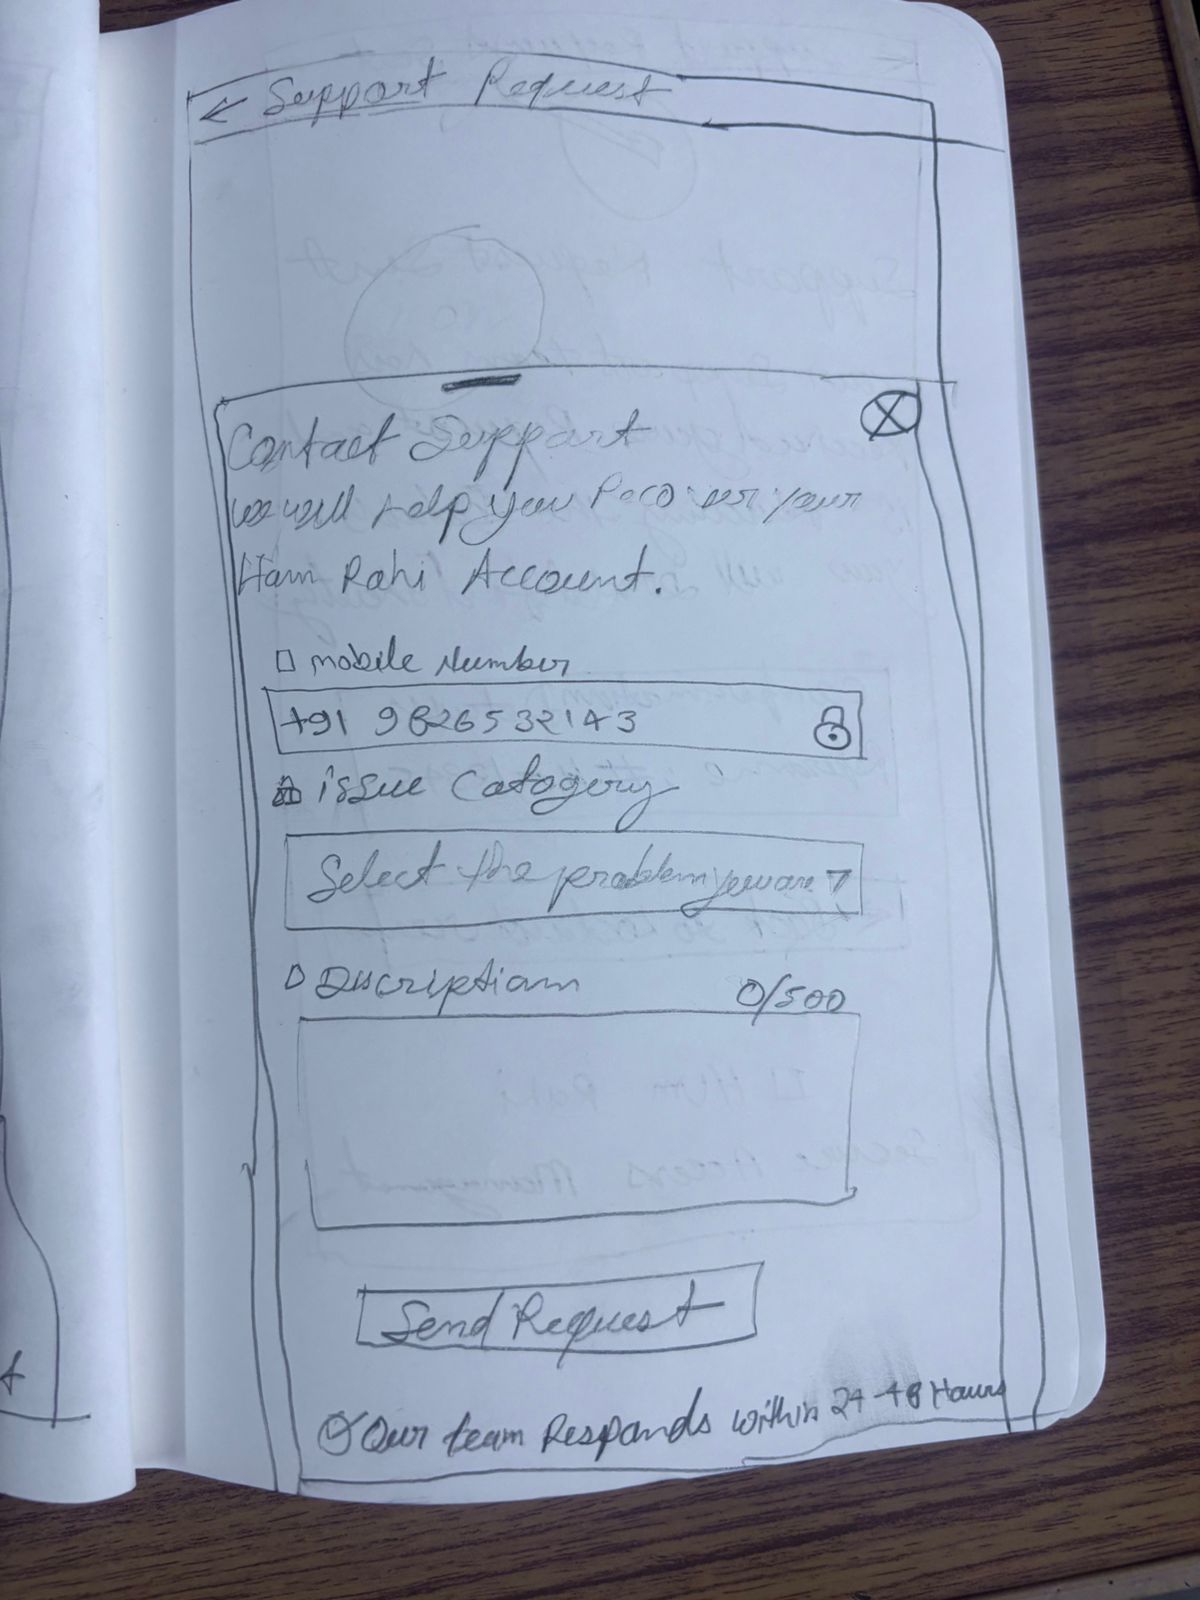 ← Support Request
Contact Support
we will help you Recover your
Ham Rahi Account.
mobile Number
+91 9826532143
issue Catogery
Select the problem you are
Discription
0/500
Send Request
Our team Responds within 24-48 Hours